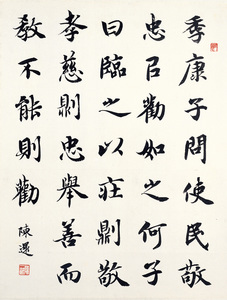 季康子問使民敬
忠㠯勸如之何子
曰臨之以莊𠟭敬
孝慈𠟭忠舉善而
教不能則勸
陳